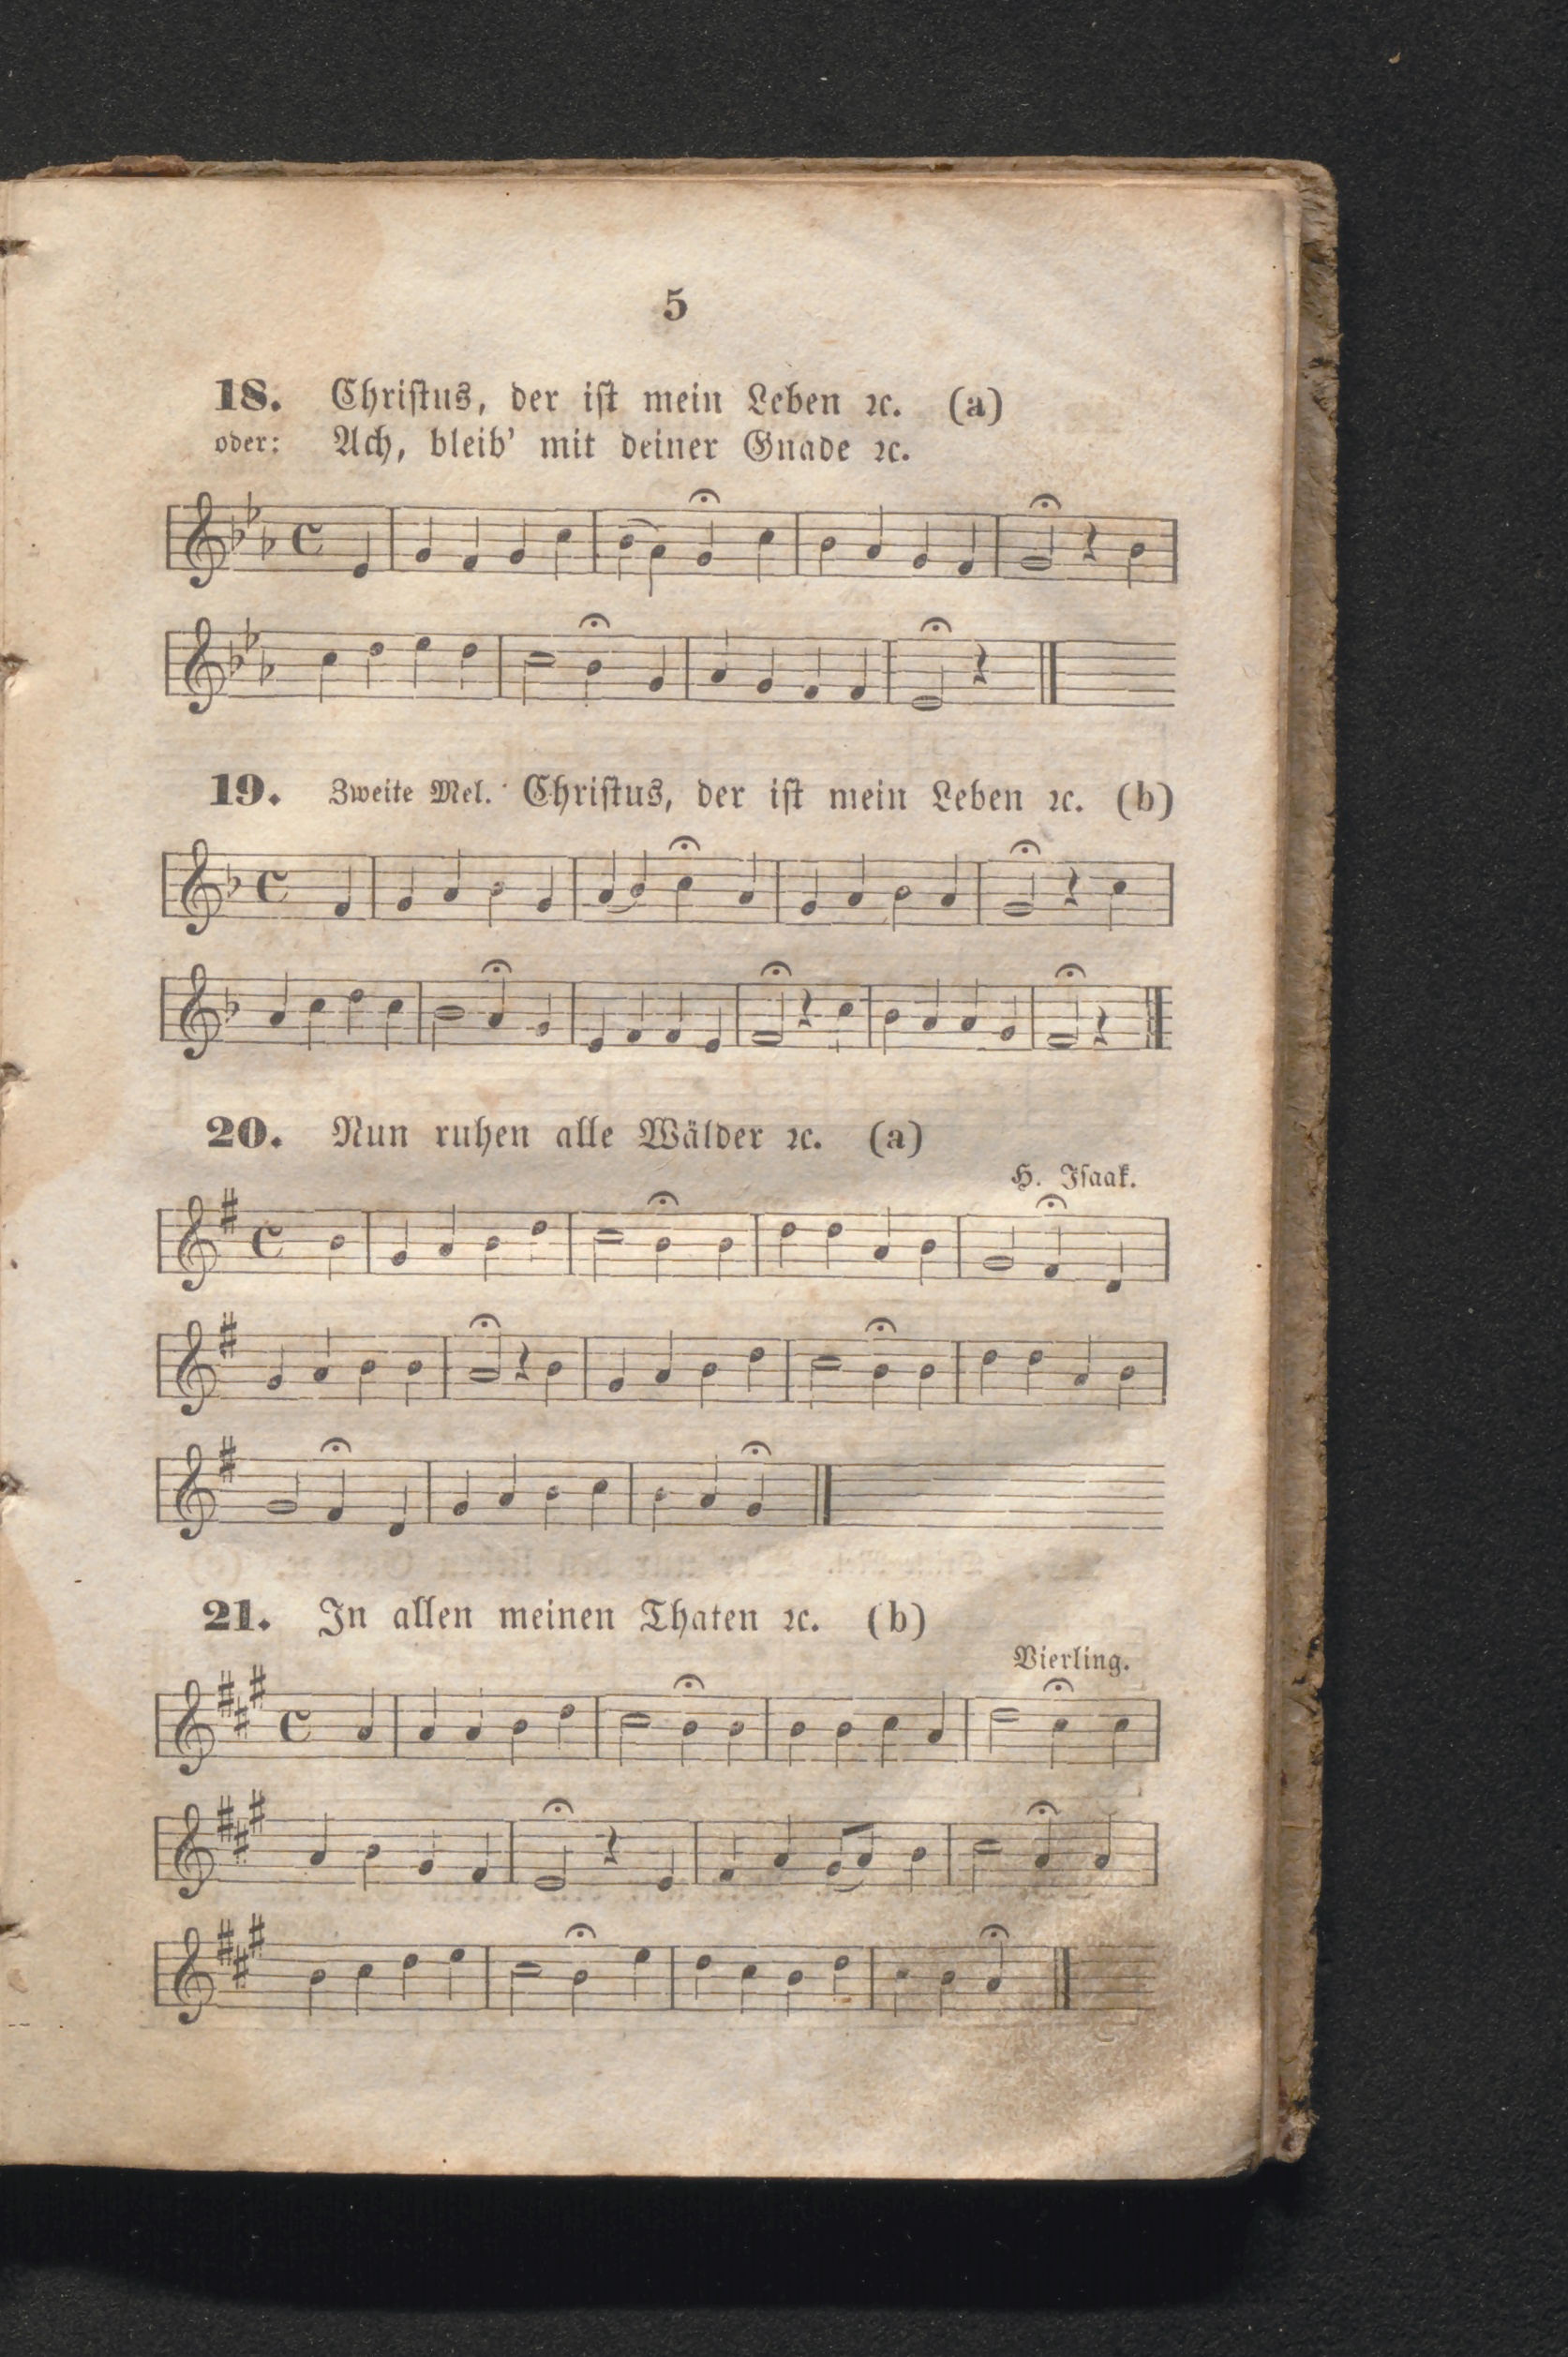 5
18. Chriſtus, der iſt mein Leben ꝛc. (a)
oder: Ach, bleib' mit deiner Gnade ꝛc.
19. Zweite Mel. Chriſtus, der iſt mein Leben ꝛc. (b)
20. Nun ruhen alle Wälder ꝛc. (a)
H. Iſaak.
21. In allen meinen Thaten ꝛc. (b)
Vierling.